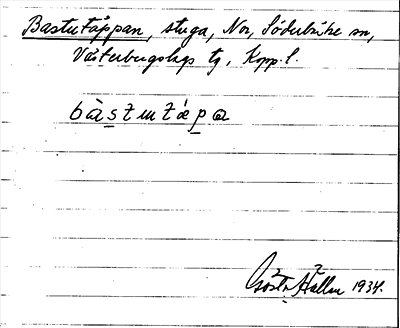 Bastutäppan, stuga, Nor, Söderbärke sn,
Västerbergslags tg, Kopp. l.
bàstutǽpa
Gösta Hallm 1934.